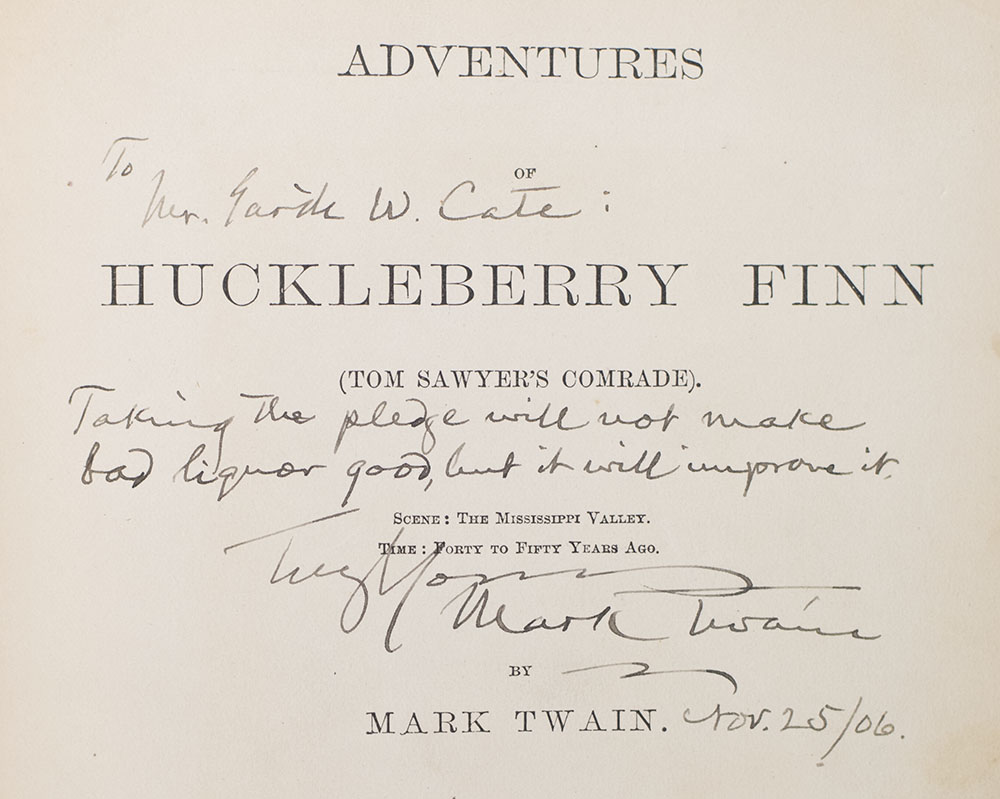 ADVENTURES
OF
To
Mr. W. Cate:
HUCKLEBERRY FINN
(TOM SAWYER'S COMRADE).
Taking the pledge will not make
bad liquor good, but it will improve it.
SCENE: THE MISSISSIPPI VALLEY.
TIME: FORTY TO FIFTY YEARS AGO.
Truly Yours
Mark Twain
BY
MARK TWAIN.
Nov. 25/06.